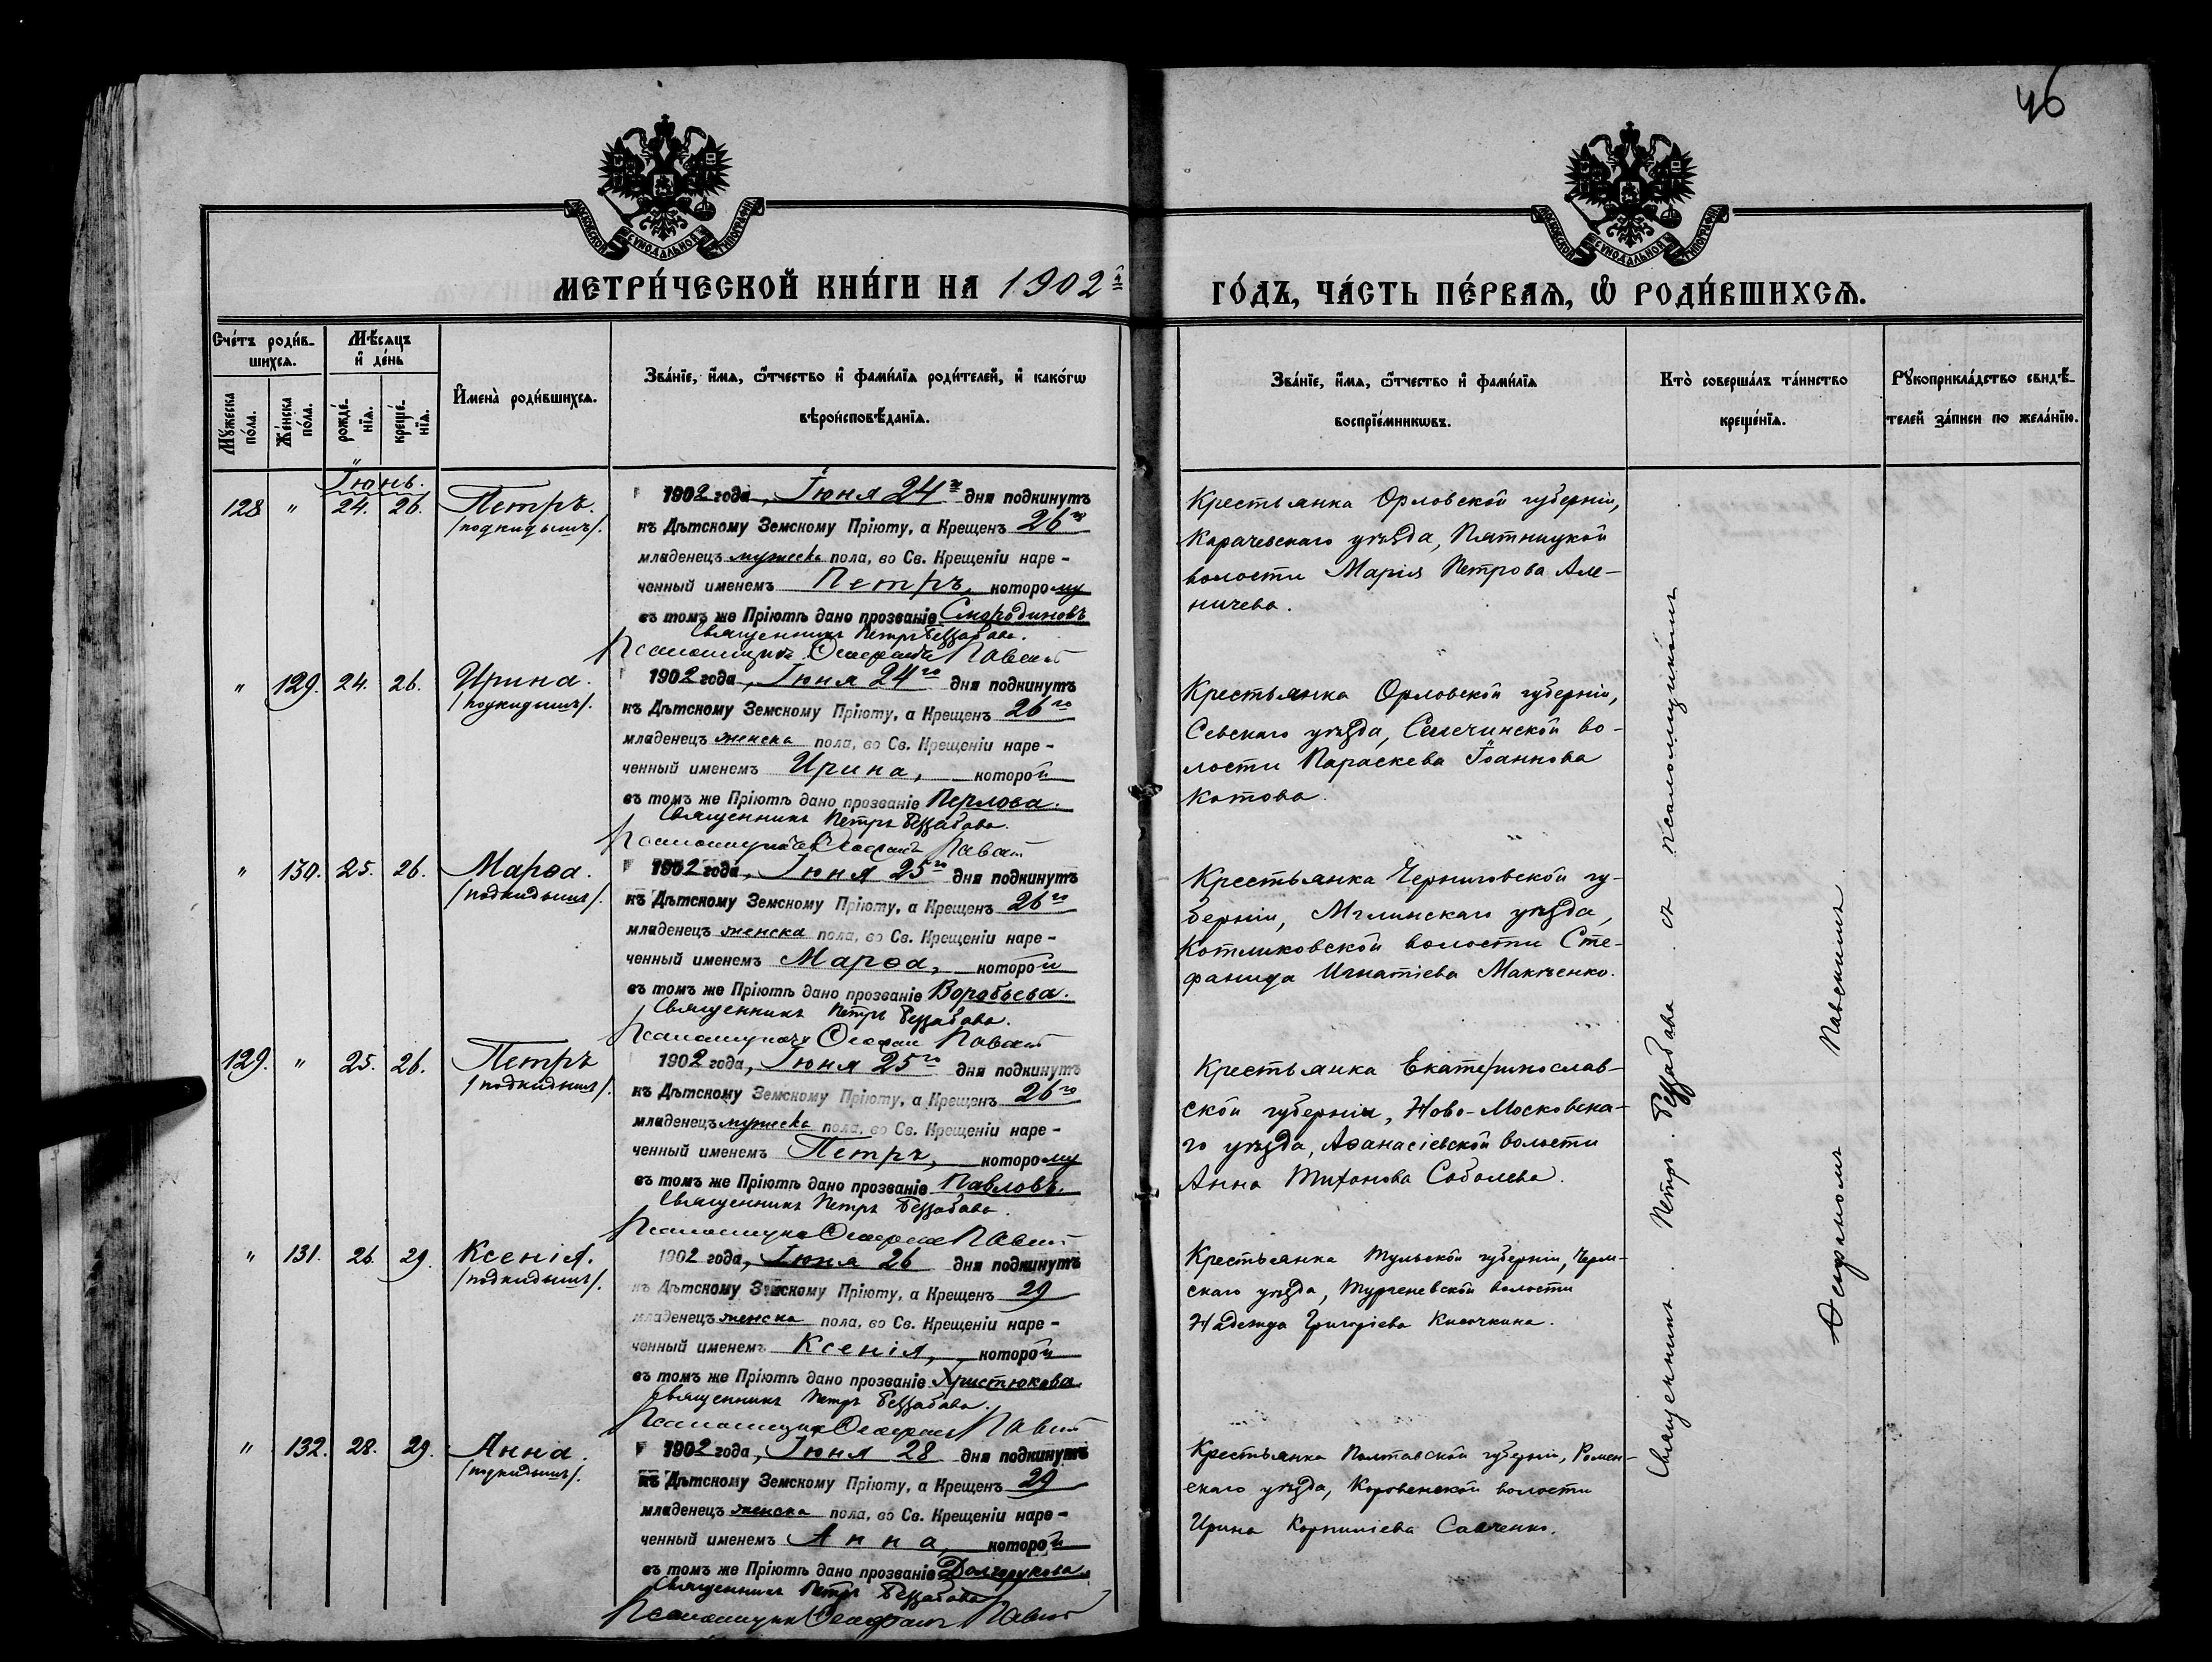 46
МОСКОВСКОЙ СѴНОДАЛЬНОЙ ТИПОГРАФІИ
МОСКОВСКОЙ СѴНОДАЛЬНОЙ ТИПОГРАФІИ
МЕТРИ́ЧЕСКОЙ КНИ́ГИ НА 1902й
ГО́ДЪ, ЧА́СТЬ ПЕ́РВАѦ, Ѡ҆ РОДИ́ВШИХСѦ.
Сче́тъ роди́в-
шихсѧ.
Мѣ́сѧцъ
и҆ де́нь
Мꙋ́жеска
по́ла.
Же́нска
по́ла.
рожде́-
нїѧ.
креще́-
нїѧ.
И҆мена̀ роди́вшихсѧ.
Зва́нїе, и҆́мѧ, ѻ҆́тчество и҆ фами́лїѧ роди́телей, и҆ како́гѡ
вѣроисповѣ́данїѧ.
Зва́нїе, и҆́мѧ, ѻ҆́тчество и҆ фами́лїѧ
воспрїе́мникѡвъ.
Кто̀ соверша́лъ та́инство
креще́нїѧ.
Рꙋкоприкла́дство свидѣ́-
телей за́писи по жела́нїю.
Іюнь.
128 " 24. 26. Петръ.
/подкидышъ/.
1902 года, Іюня 24го дня подкинутъ
къ Дѣтскому Земскому Пріюту, а Крещенъ 26го
младенецъ мужеска пола, во Св. Крещеніи наре-
ченный именемъ Петръ, которому
въ томъ же Пріютѣ дано прозваніе Смородиновъ
Священникъ Петръ Беззабава.
Псаломщикъ Павскій
Крестьянка Орловской губерніи,
Карачевскаго уѣзда, Пятницкой
волости Марія Петрова Але-
ничева.
" 129. 24. 26. Ирина.
/подкидышъ/.
1902 года, Іюня 24го дня подкинутъ
къ Дѣтскому Земскому Пріюту, а Крещенъ 26го
младенецъ женска пола, во Св. Крещеніи наре-
ченный именемъ Ирина, которой
въ томъ же Пріютѣ дано прозваніе Перлова.
Священникъ Петръ Беззабава.
Псаломщикъ Павскій
Крестьянка Орловской губерніи,
Севскаго уѣзда, Селечинской во-
лости Параскева Іоаннова
Котова.
" 130. 25. 26. Марѳа.
/подкидышъ/.
1902 года, Іюня 25го дня подкинутъ
къ Дѣтскому Земскому Пріюту, а Крещенъ 26го
младенецъ женска пола, во Св. Крещеніи наре-
ченный именемъ Марѳа, которой
въ томъ же Пріютѣ дано прозваніе Воробьева.
Священникъ Петръ Беззабава.
Псаломщикъ Павскій
Крестьянка Черниговской гу-
берніи, Мглинскаго уѣзда,
Котляковской волости Сте-
фанида Игнатіева
129. " 25. 26. Петръ
/подкидышъ/.
1902 года, Іюня 25го дня подкинутъ
къ Дѣтскому Земскому Пріюту, а Крещенъ 26го
младенецъ мужеска пола, во Св. Крещеніи наре-
ченный именемъ Петръ, которому
въ томъ же Пріютѣ дано прозваніе Павловъ.
Священникъ Петръ Беззабава.
Псаломщикъ Павскій
Крестьянка Екатеринослав-
ской губерніи, Ново-Московска-
го уѣзда, Аѳанасіевской волости
Анна Тихонова Соболева.
" 131. 26. 29. Ксенія.
/подкидышъ/.
1902 года, Іюня 26 дня подкинутъ
къ Дѣтскому Земскому Пріюту, а Крещенъ 29
младенецъ женска пола, во Св. Крещеніи наре-
ченный именемъ Ксенія, которой
въ томъ же Пріютѣ дано прозваніе Христюкова.
Священникъ Петръ Беззабава.
Псаломщикъ Павскій
Крестьянка Тульской губерніи, Черн-
скаго уѣзда, Тургеневской волости
Надежда Григоріева
" 132. 28. 29. Анна.
/подкидышъ/.
1902 года, Іюня 28 дня подкинутъ
къ Дѣтскому Земскому Пріюту, а Крещенъ 29
младенецъ женска пола, во Св. Крещеніи наре-
ченный именемъ Анна, которой
въ томъ же Пріютѣ дано прозваніе Долгорукова.
Священникъ Петръ Беззабава
Псаломщикъ Павскій
Крестьянка Полтавской губерніи, Ромен-
скаго уѣзда, Коровенской волости
Ирина Корниліева Савченко.
Священникъ Петръ Беззабава съ псаломщикомъ
Павскимъ.